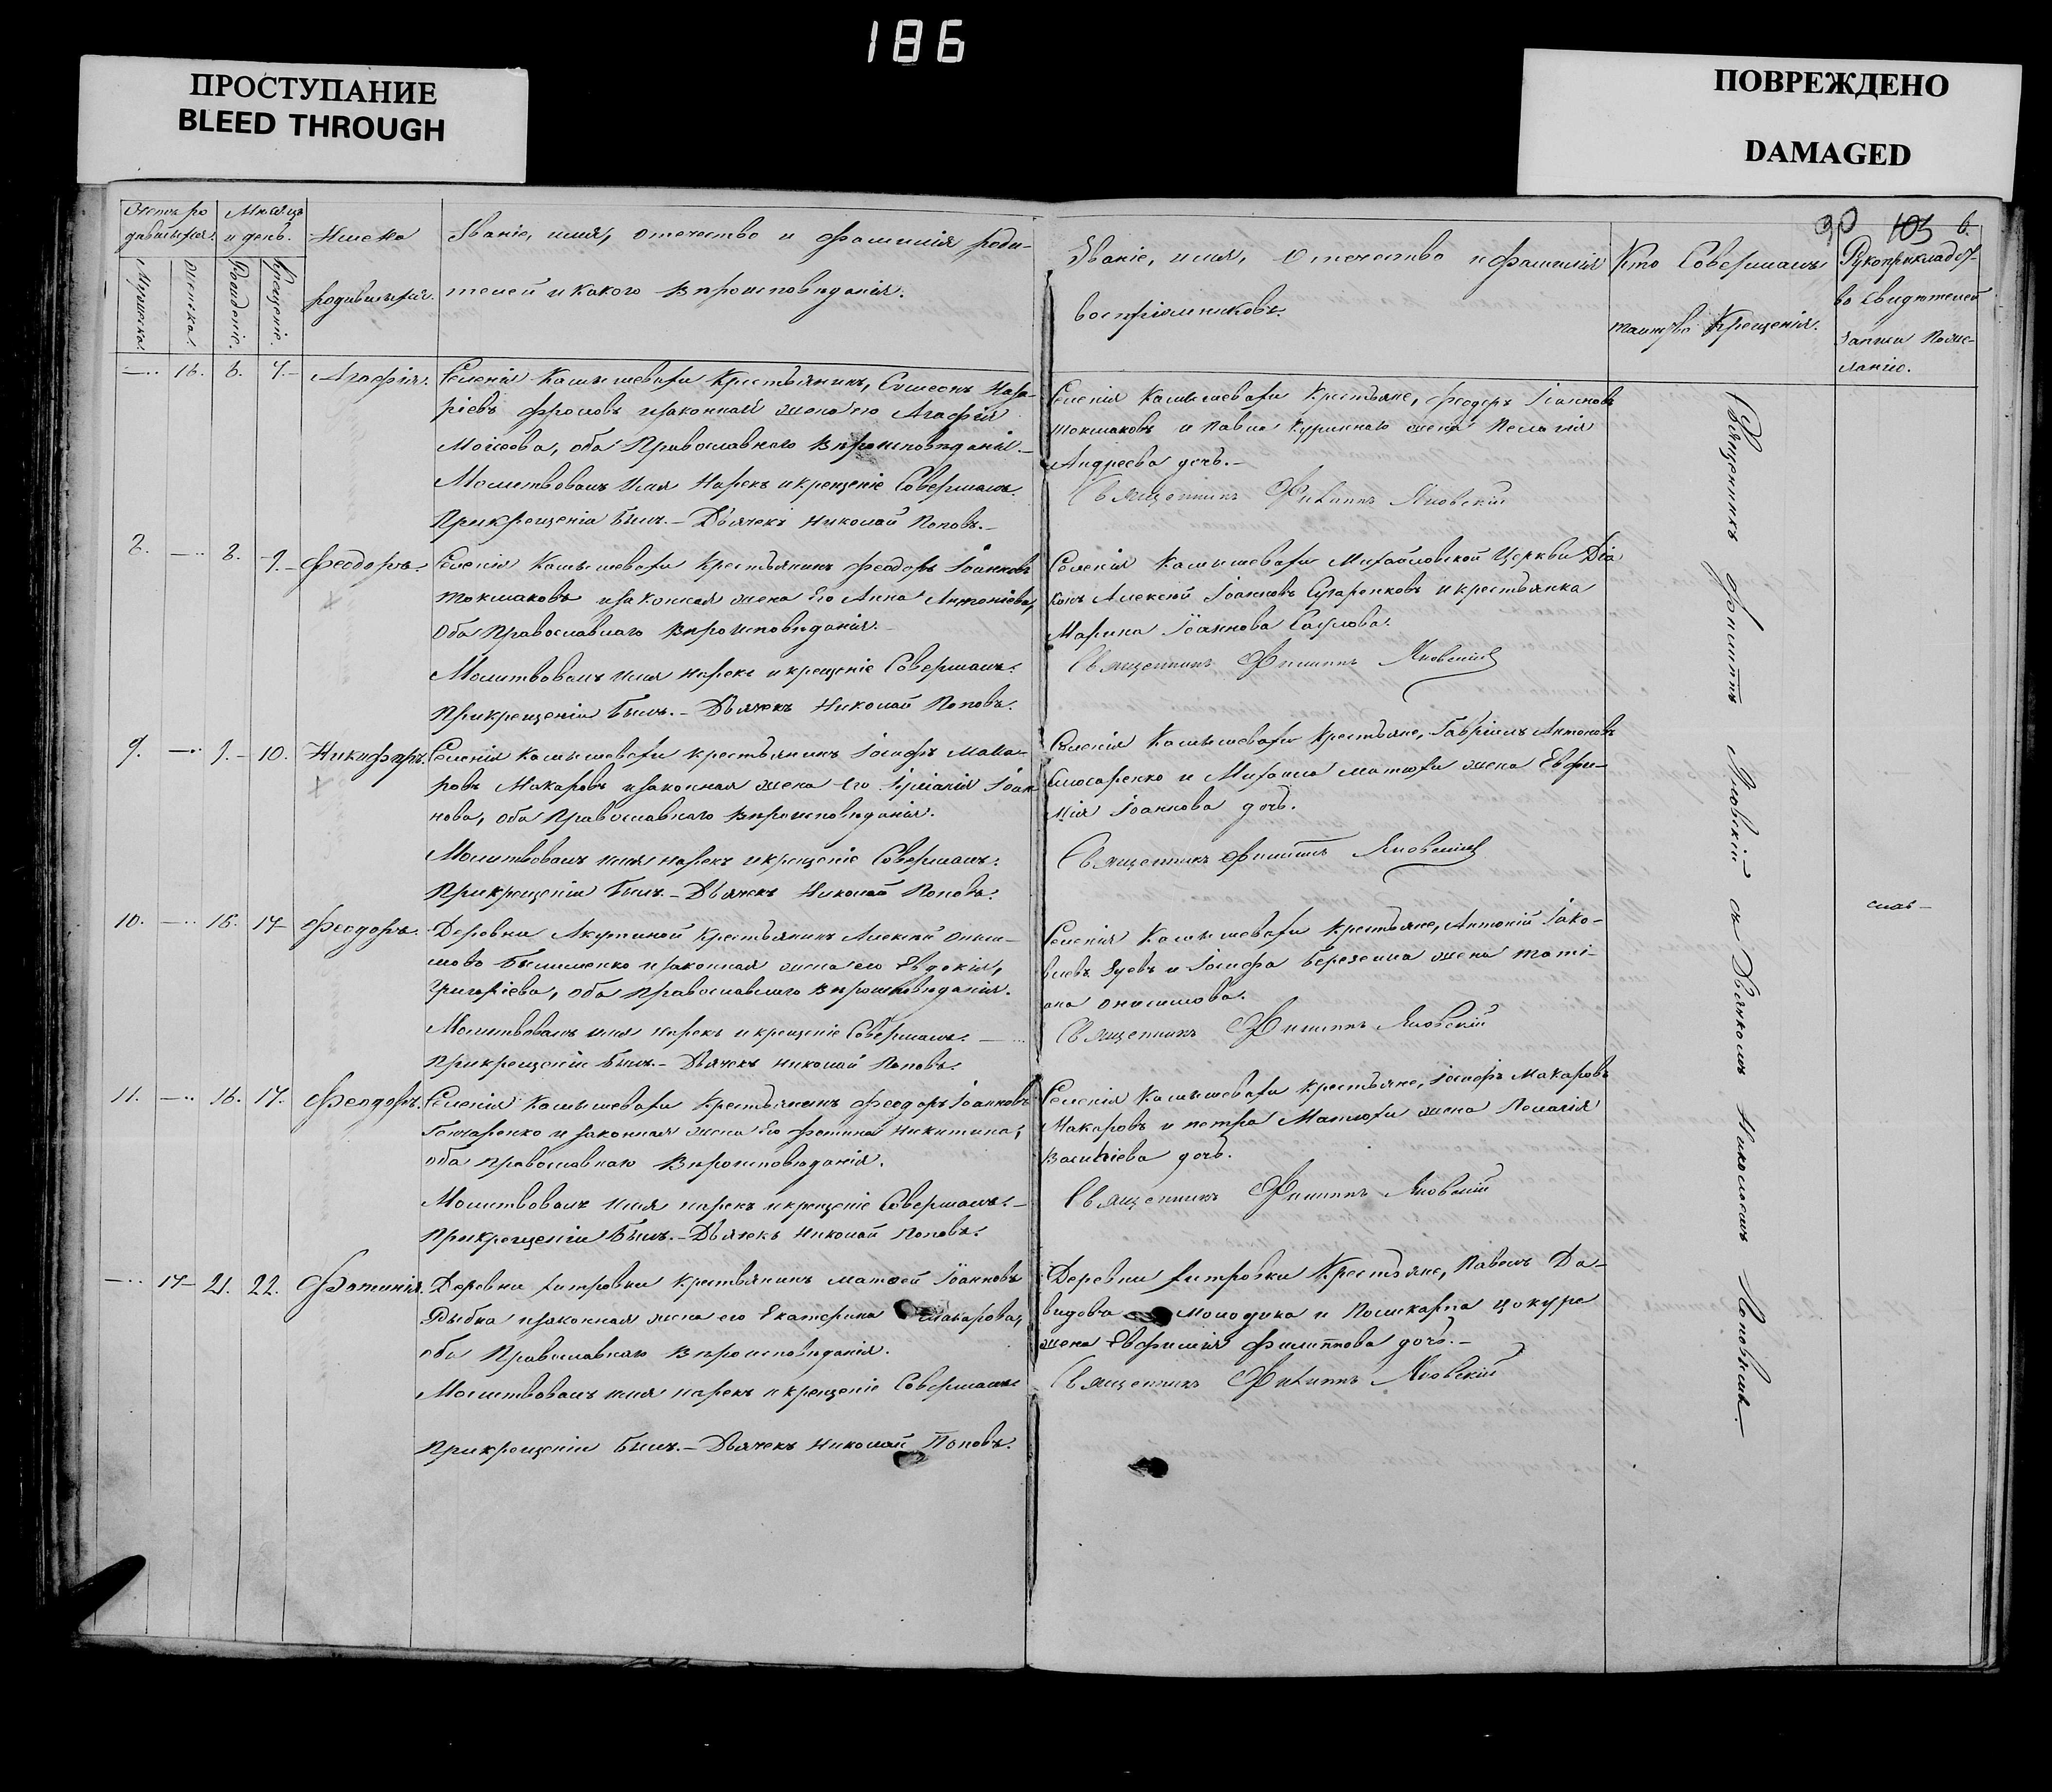 186
ПРОСТУПАНИЕ
BLEED THROUGH
ПОВРЕЖДЕНО
DAMAGED
90 103 6.
Мѣсяцъ
и день.
Имена
родившихся.
Званіе, имя, отечество и фамилія роди-
телей и какого вѣроисповѣданія.
Званіе, имя, отечество и фамилія
воспріемниковъ.
Кто Совершалъ
таинство Крещенія.
Рукоприкладст-
во Свидѣтелей
записи по же-
ланію.
Мужеска.
Женска.
Рожденіе.
Крещеніе.
16. 6. 7. Агафія.
Селенія Камышевахи Крестьянинъ, Симеонъ Наза-
ріевъ Фроловъ и законная жена его Агафія
Моисеова, оба Православнаго вѣроисповѣданія.
Молитвовалъ имя нарекъ и крещеніе Совершалъ.
При крещеніи былъ.- Дьячекъ Николай Поповъ.-
Селенія Камышевахи Крестьяне, Феодоръ Іоанновъ
Токмаковъ и Павла жена Пелагія
Андреева дочь.-
Священникъ Филиппъ Яновскій
8. 8. 9. Феодоръ.
Селенія Камышевахи Крестьянинъ Феодоръ Іоанновъ
Токмаковъ и законная жена его Анна Антоніева,
оба Православнаго вѣроисповѣданія.
Молитвовалъ имя нарекъ и крещеніе Совершалъ.
При крещеніи былъ.- Дьячекъ Николай Поповъ.
Селенія Камышевахи Михайловской Церкви Діа
конъ Алексѣй Іоанновъ и крестьянка
Марина Іоаннова
Священникъ Филиппъ Яновскій
9. 9. 10. Никифоръ.
Селенія Камышевахи крестьянинъ Іосифъ Мака-
ровъ Макаровъ и законная жена его Іуліанія Іоан
нова, оба Православнаго вѣроисповѣданія.
Молитвовалъ имя нарекъ и крещеніе Совершалъ.
При крещеніи былъ.- Дьячекъ Николай Поповъ.
Селенія Камышевахи Крестьяне, Гавріилъ Антоновъ
Слюсаренко и Михаила Матюхи жена Евфи-
мія Іоаннова дочь.
Священникъ Филиппъ Яновскій
10. 16. 17. Феодоръ.
Деревни Крестьянинъ АлексѣйОниси-
мовъ и законная жена его Евдокія,
Григоріева, оба Православнаго вѣроисповѣданія.
Молитвовалъ имя нарекъ и крещеніе Совершалъ.
При крещеніи былъ.- Дьячекъ Николай Поповъ.
Селенія Камышевахи Крестьяне, Антоній Іако-
влевъ Зуевъ и Іосифа жена Таті-
ана Онисимова.
Священникъ Филиппъ Яновскій
11. 16. 17. Феодоръ.
Селенія Камышевахи Крестьянинъ Феодоръ Іоанновъ
Гончаренко и законная жена его Фотина Никитина,
оба православнаго вѣроисповѣданія.
Молитвовалъ имя нарекъ и крещеніе Совершалъ.
При крещеніи былъ.- Дьячекъ Николай Поповъ.
Селенія Камышевахи Крестьяне, Іосифъ Макаровъ
Макаровъ и Петра Матюхи жена Пелагія
Василіева дочь.
Священникъ Филиппъ Яновскій
17. 21. 22. Фотинія.
Деревни Хитровки Крестьянинъ Матфей Іоанновъ
Рыбка и законная жена его Екатерина Макарова,
оба Православнаго вѣроисповѣданія.
Молитвовалъ имя нарекъ и крещеніе Совершалъ
При крещеніи былъ.- Дьячекъ Николай Поповъ.
Деревни Хитровки Крестьяне, Павелъ Да-
видовъ Молодика и Поликарпа
жена Евфимія Филиппова дочь.-
Священникъ Филиппъ Яновскій
Священникъ Филиппъ Яновскій съ Дьячкомъ Николаемъ Поповымъ.